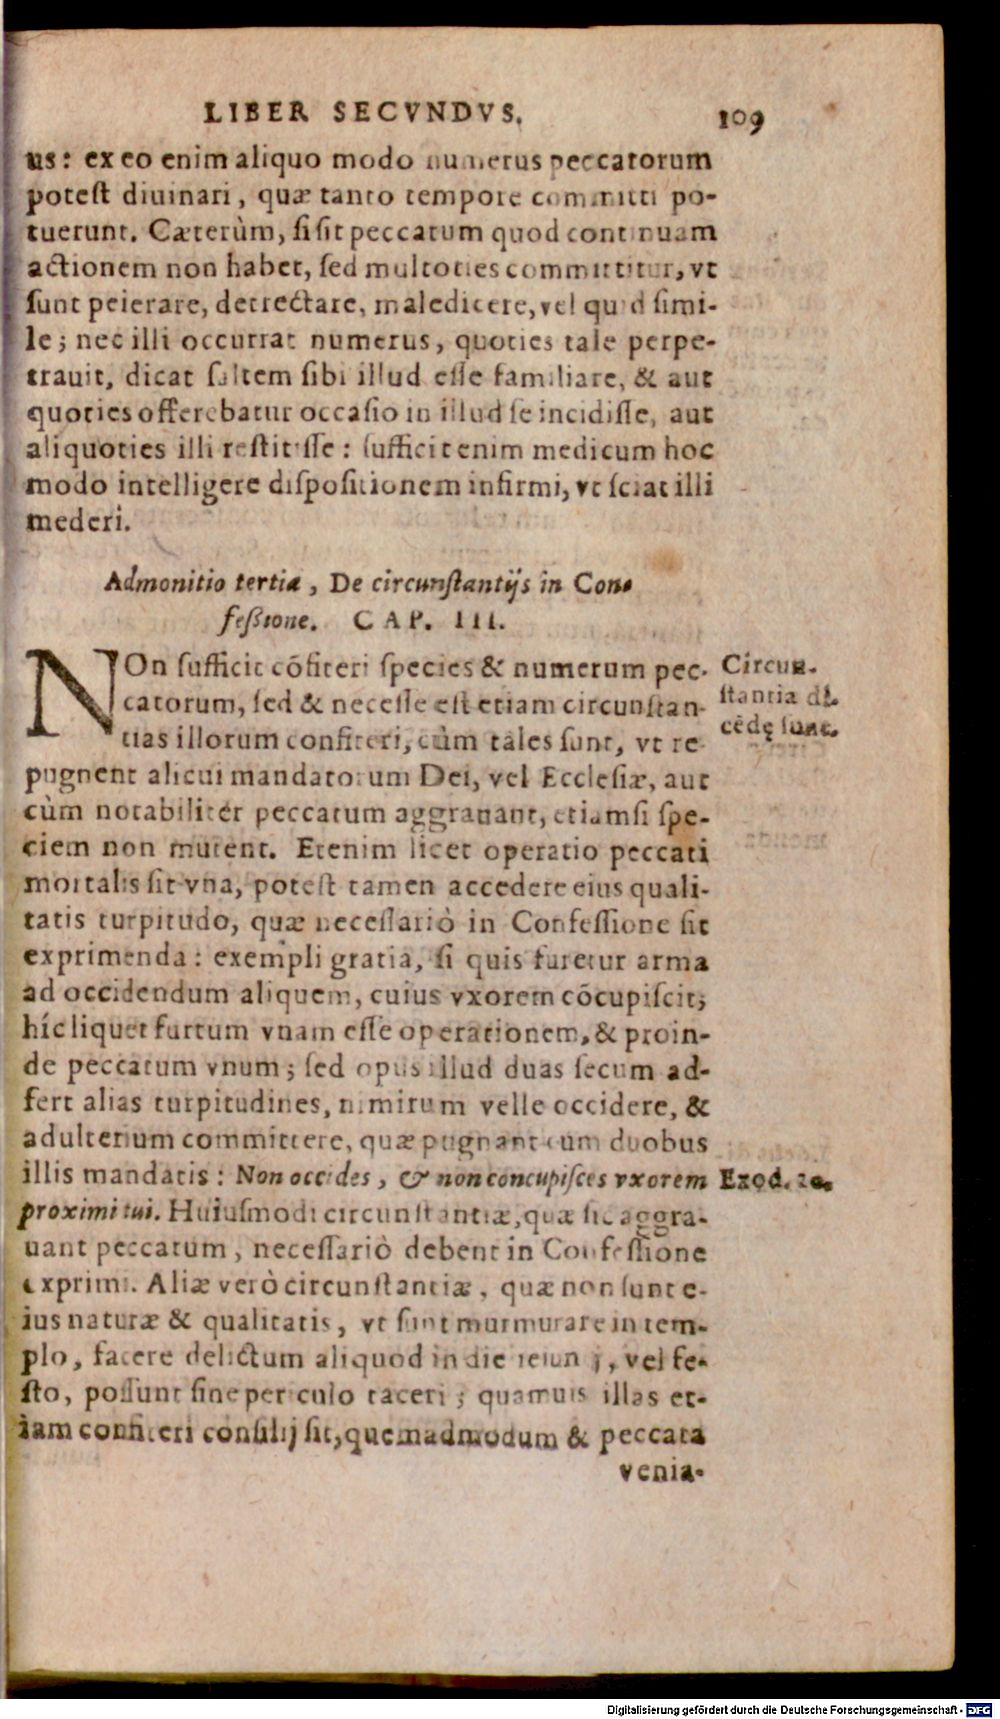 LIBER SECVNDVS. 109
us: ex eo enim aliquo modo numerus peccatorum
potest diuinari, quæ tanto tempore committi po-
tuerunt. Cæterùm, si sit peccatum quod continuam
actionem non habet, sed multoties committitur, vt
sunt peierare, detrectare, maledicere, vel quid simi-
le; nec illi occurrat numerus, quoties tale perpe-
trauit, dicat saltem sibi illud esse familiare, & aut
quoties offerebatur occasio in illud se incidisse, aut
aliquoties illi restitisse: sufficit enim medicum hoc
modo intelligere dispositionem infirmi, vt sciat illi
mederi.
Admonitio tertia, De circunstantijs in Con-
fessione. CAP. III.
NOn sufficit cōfiteri species & numerum pec-
catorum, sed & necesse est etiam circunstan-
tias illorum confiteri, cùm tales sunt, vt re-
pugnent alicui mandatorum Dei, vel Ecclesiæ, aut
cùm notabiliter peccatum aggrauant, etiamsi spe-
ciem non mutent. Etenim licet operatio peccati
mortalis sit vna, potest tamen accedere eius quali-
tatis turpitudo, quæ necessariò in Confessione sit
exprimenda: exempli gratia, si quis furetur arma
ad occidendum aliquem, cuius vxorem cōcupiscit;
híc liquet furtum vnam esse operationem, & proin-
de peccatum vnum; sed opus illud duas secum ad-
fert alias turpitudines, nimirum velle occidere, &
adulterium committere, quæ pugnant cum duobus
illis mandatis: Non occides, & non concupisces vxorem
proximi tui. Huiusmodi circunstantiæ, quæ sic aggra-
uant peccatum, necessariò debent in Confessione
exprimi. Aliæ verò circunstantiæ, quæ non sunt e-
ius naturæ & qualitatis, vt sunt murmurare in tem-
plo, facere delictum aliquod in die ieiunij, vel fe-
sto, possunt sine periculo taceri; quamuis illas et-
iam confiteri consilij sit, quemadmodum & peccata
venia-
Circun-
stantia di-
cēdę sunt.
Exod. 20.
Digitalisierung gefördert durch die Deutsche Forschungsgemeinschaft - DFG